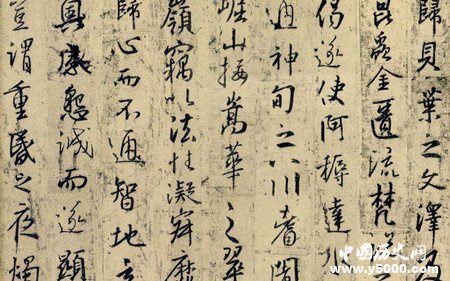 歸貝葉之文澤及
昆蟲金匱流梵
偈遂使阿耨達水
通神甸之八川耆闍
崛山接嵩華之翠
嶺竊以法性凝寂靡
歸心而不通智地玄
奧感懇誠而遂顯
豈謂重昏之夜燭
中国历史网
www.y5000.com